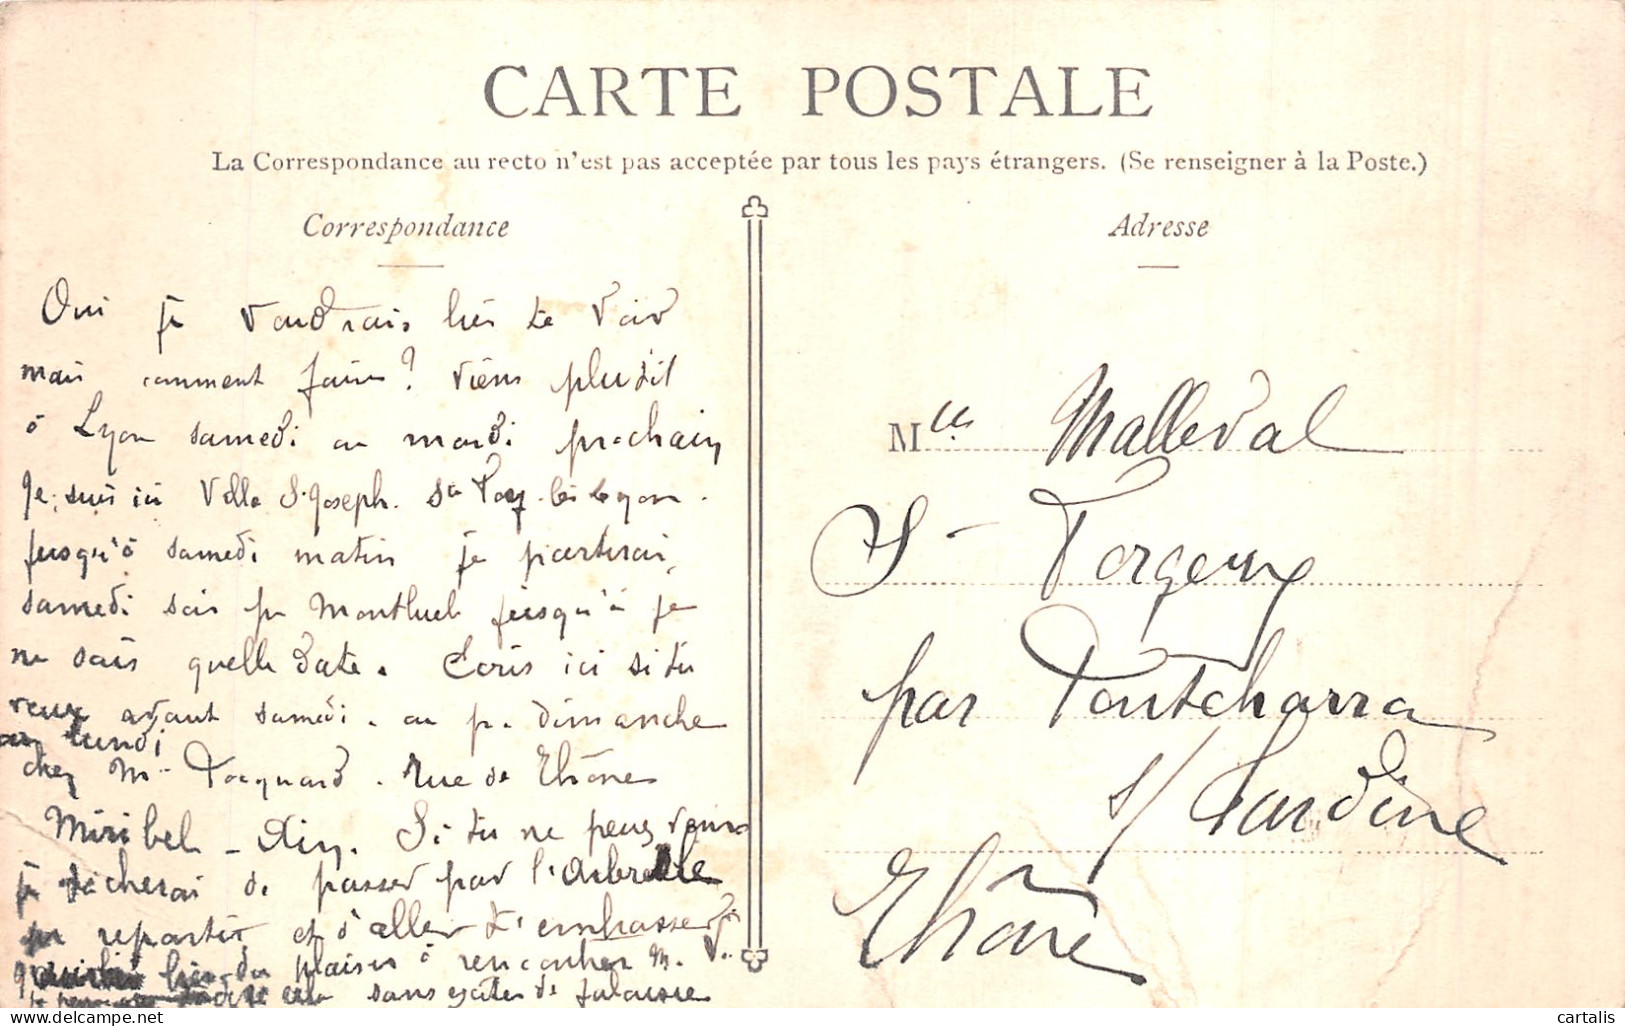 CARTE POSTALE
La Correspondance au recto n'est pas acceptée par tous les pays étrangers. (Se renseigner à la Poste.)
Correspondance
Adresse
Oui je voudrais bien te voir
mais comment faire ? viens plutôt
à Lyon samedi ou mardi prochain
Je suis ici Villa St Joseph. Ste Foy-les-Lyon.
jusqu'à samedi matin je partirai
samedi soir pr Montluel jusqu'à je
ne sais quelle date. Ecris ici si tu
veux avant samedi. ou pr dimanche
ou lundi
chez Mr Jacquard. Rue de Rhône
Miribel - Ain. Si tu ne peux venir
je tâcherai de passer par l'Arbresle
pr repartir et d'aller t'embrasser.
bien du plaisir à rencontrer M. V.
cela sans excès de jalousie
Mlle Malleval
St Forgeux
par Pontcharra
s/ Turdine
Rhône
cartalis